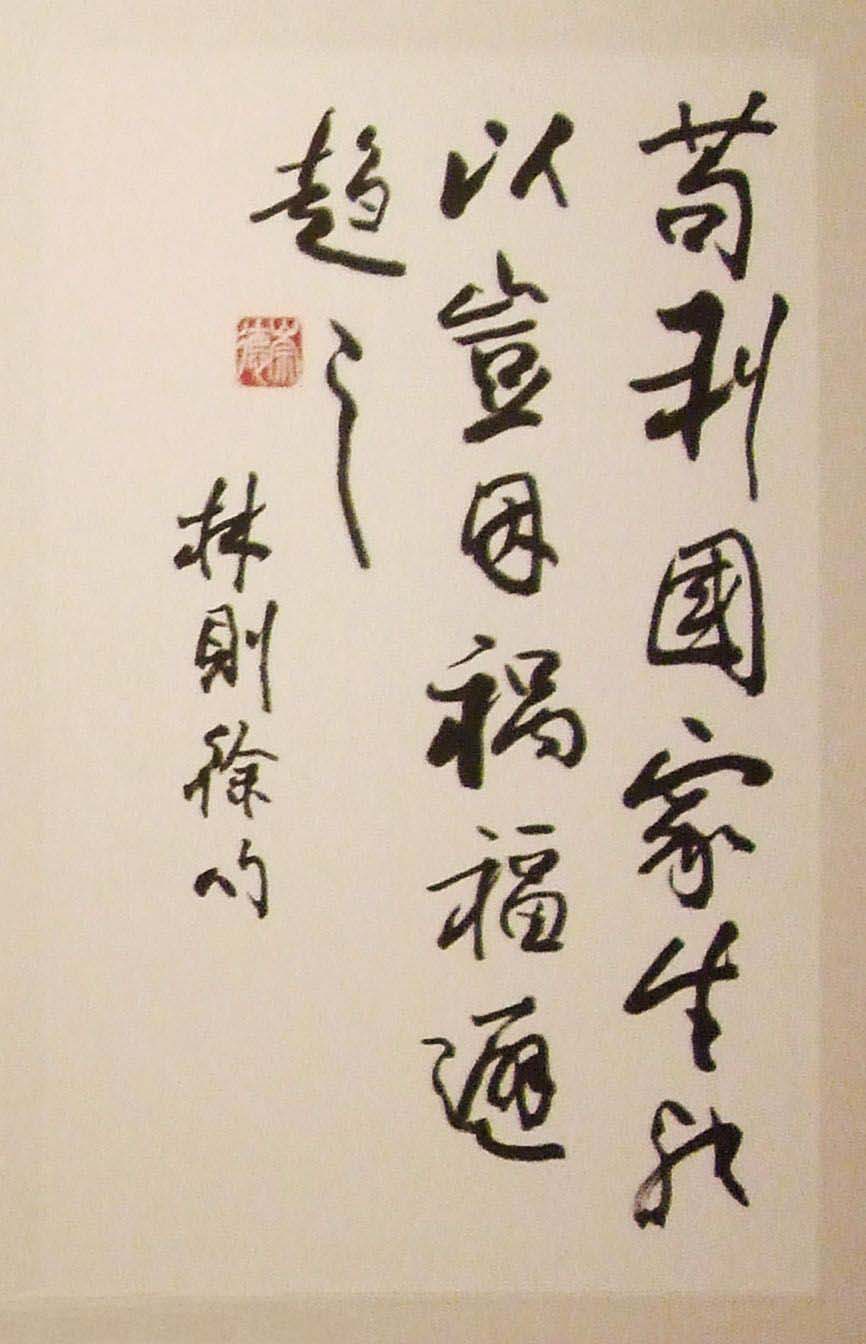 苟利國家生死
以豈因禍福避
趨之
林則徐句